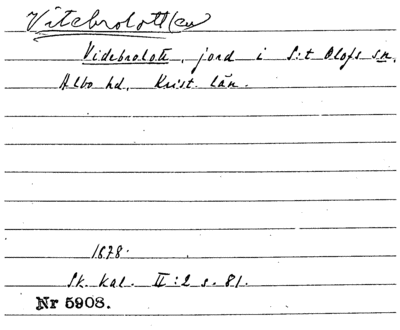 Vitebrolott(en)
Videbrolott, jord i S:t Olofs sn,
Albo hd, Krist. län.
1678.
Sk. kal. II:2 s. 81.
Nr 5908.